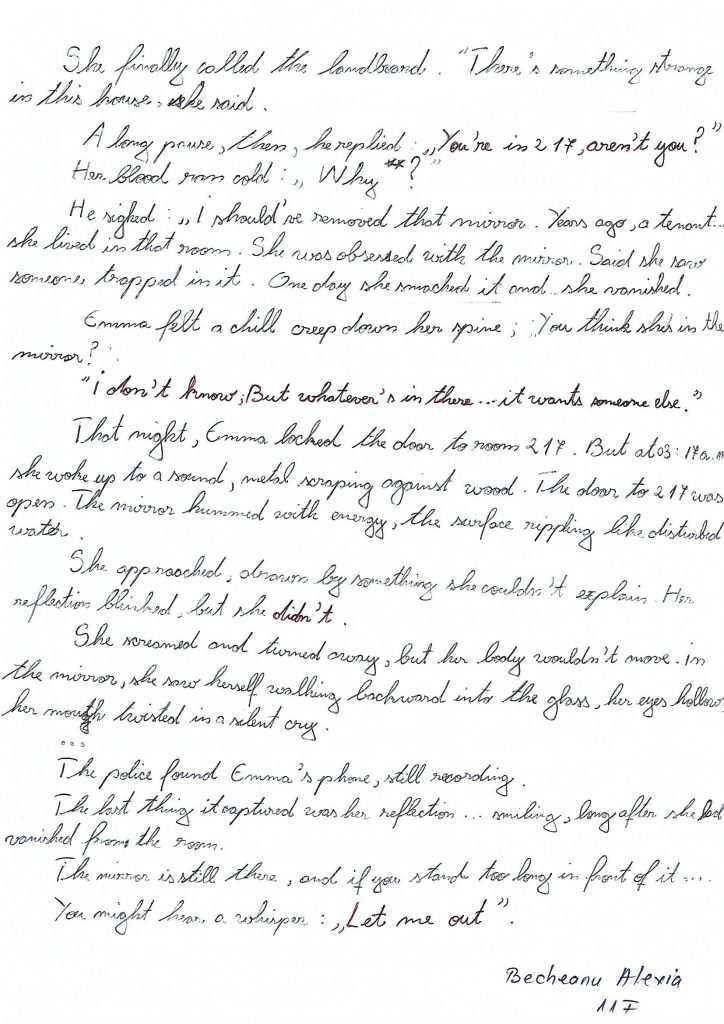 She finally called the landboard. "There's something strange
in this house, she said.
A long pause, then, he replied: „You're in 217, aren't you?"
Her blood ran cold: „ Why ?"
He sighed: „I should've removed that mirror. Years ago, a tenant...
she lived in that room. She was obsessed with the mirror. Said she saw
someone trapped in it. One day she smached it and... she vanished.
Emma felt a chill creep down her spine; „You think she's in the
mirror?".
"I don't know; But whatever's in there... it wants someone else."
That night, Emma locked the door to room 217. But at 03:17 a.m
she woke up to a sound, metal scraping against wood. The door to 217 was
open. The mirror hummed with energy, the surface rippling like disturbed
water.
She approached, drawn by something she couldn't explain. Her
reflection blinked, but she didn't.
She screamed and turned away, but her body wouldn't move. In
the mirror, she saw herself walking backward into the glass, her eyes hollow,
her mouth twisted in a silent cry.
...
The police found Emma's phone, still recording.
The last thing it captured was her reflection ... smiling, long after she had
vanished from the room.
The mirror is still there, and if you stand too long in front of it ....
You might hear a whisper: „Let me out".
Becheanu Alexia
11F